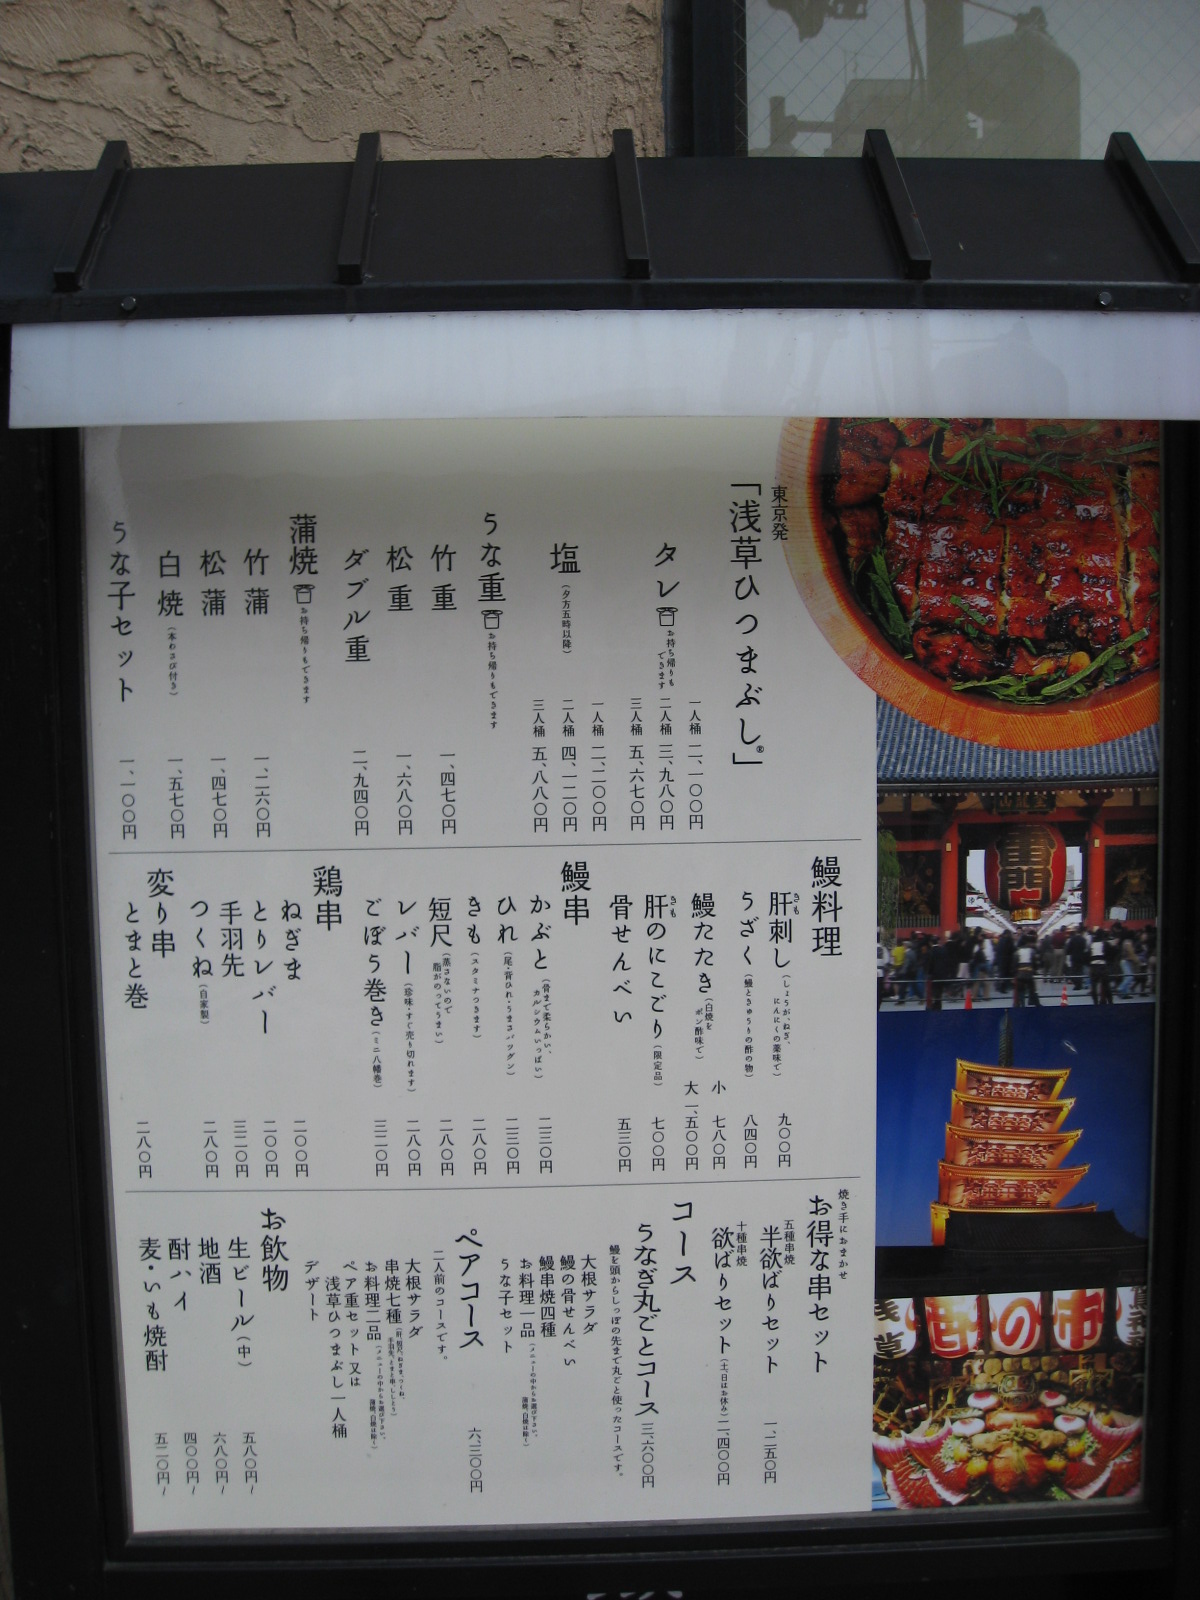 東京発
「浅草ひつまぶし®」
タレ お持ち帰りもできます
一人桶 二、一〇〇円
二人桶 三、九八〇円
三人桶 五、六七〇円
塩(夕方五時以降)
一人桶 二、二〇〇円
二人桶 四、一二〇円
三人桶 五、八八〇円
うな重 お持ち帰りもできます
竹重 一、四七〇円
松重 一、六八〇円
ダブル重 二、九四〇円
蒲焼 お持ち帰りもできます
竹蒲 一、二六〇円
松蒲 一、四七〇円
白焼(本わさび付き) 一、五七〇円
うな子セット 一、一〇〇円
鰻料理
肝刺し(しょうが、ねぎ、にんにくの薬味で) 九〇〇円
きも
うざく(鰻ときゅうりの酢の物) 八四〇円
鰻たたき(白焼をポン酢味で) 小 七八〇円
大 一、五〇〇円
肝のにこごり(限定品) 七〇〇円
きも
骨せんべい 五三〇円
鰻串
かぶと(骨まで柔らかい、カルシウムいっぱい) 二三〇円
ひれ(尾・背ひれ・うまさバツグン) 二三〇円
きも(スタミナつきます) 二八〇円
短尺(蒸さないので脂がのってうまい) 二八〇円
レバー(珍味・すぐ売り切れます) 二八〇円
ごぼう巻き(ミニ八幡巻) 三二〇円
鶏串
ねぎま 二〇〇円
とりレバー 二〇〇円
手羽先 三二〇円
つくね(自家製) 二八〇円
変り串
とまと巻 二八〇円
焼き手におまかせ
お得な串セット
五種串焼
半欲ばりセット 一、二五〇円
十種串焼
欲ばりセット(土、日はお休み) 二、四〇〇円
コース
うなぎ丸ごとコース 三、六〇〇円
鰻を頭からしっぽの先まで丸ごと使ったコースです。
大根サラダ
鰻の骨せんべい
鰻串焼四種
お料理一品(メニューの中からお選び下さい、蒲焼、白焼は除く)
うな子セット
ペアコース 六、三〇〇円
二人前のコースです。
大根サラダ
串焼七種
お料理二品(メニューの中からお選び下さい、蒲焼、白焼は除く)
ペア重セット又は
浅草ひつまぶし一人桶
デザート
お飲物
生ビール(中) 五八〇円〜
地酒 六八〇円〜
酎ハイ 四〇〇円〜
麦・いも焼酎 五二〇円〜
雷門
酉の市
浅草